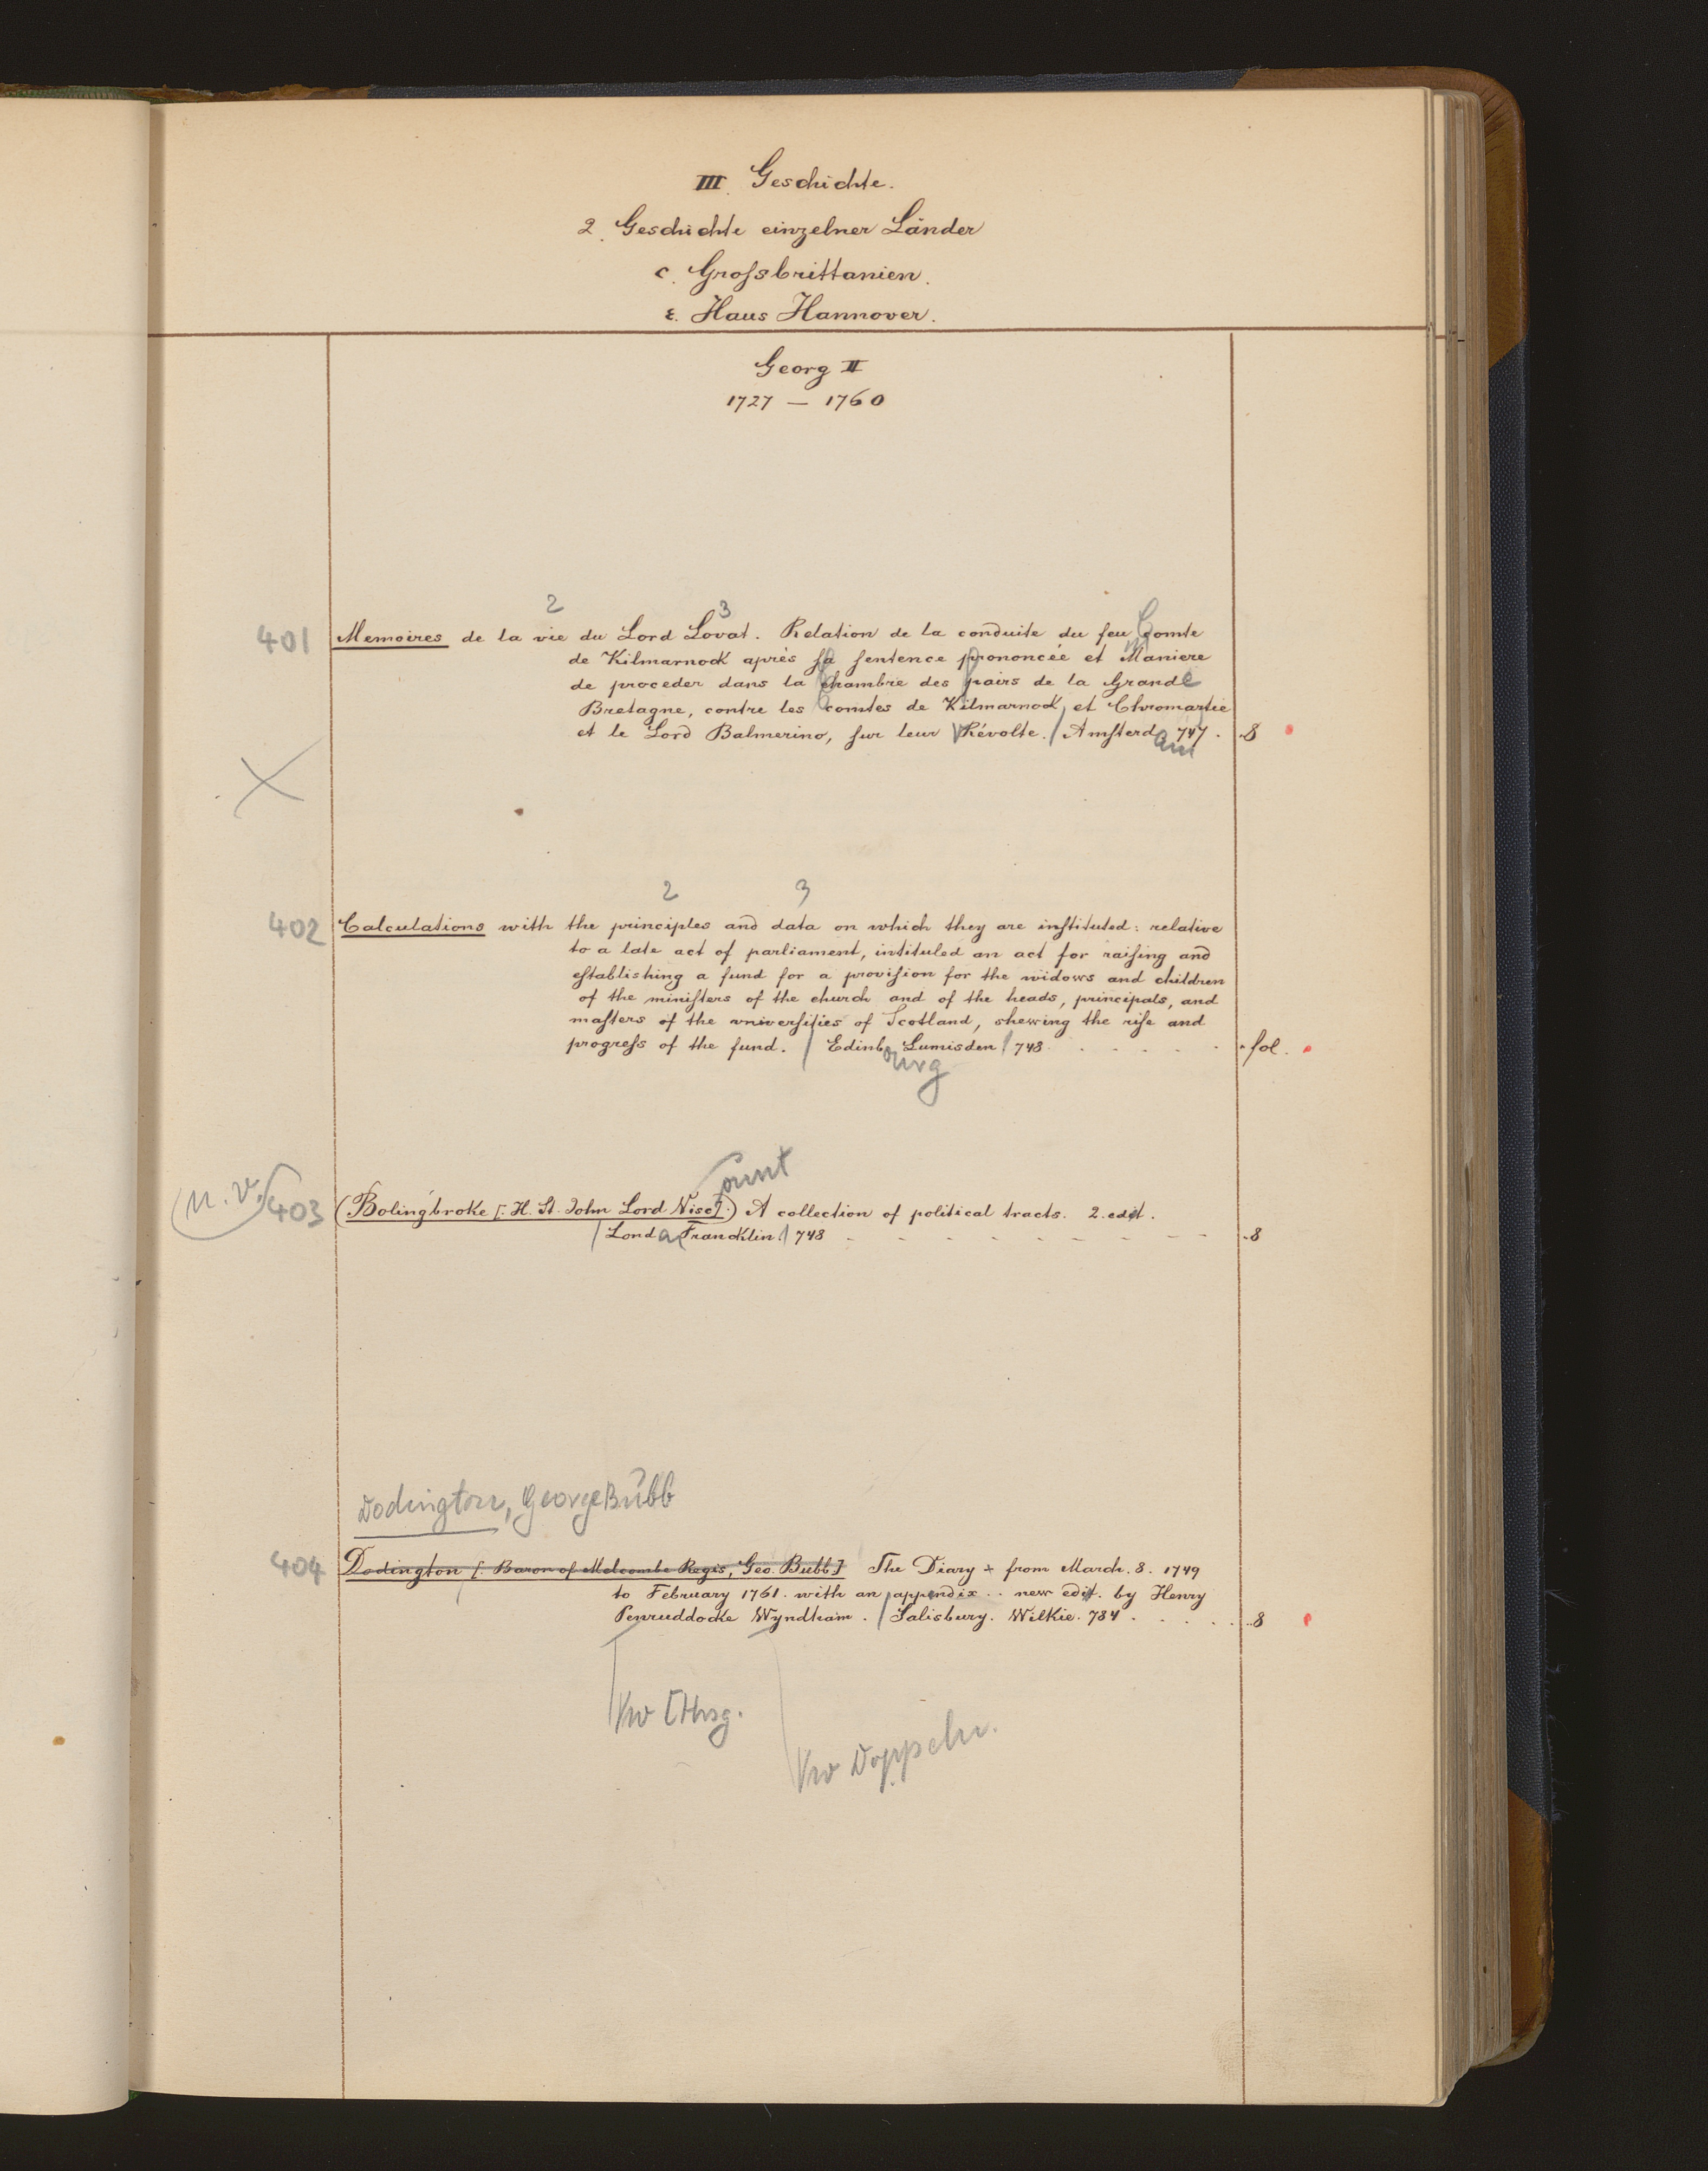 III. Geschichte.
2. Geschichte einzelner Länder
c. Grossbrittanien.
ε. Haus Hannover.
Georg II
1727 — 1760
2 3
401 Memoires de la vie du Lord Lovat. Relation de la conduite du feu Comte
de Kilmarnock après sa sentence prononcée et Maniere
de proceder dans la Chambre des pairs de la Grande
Bretagne, contre les Comtes de Kilmarnock, et Chromartie
et le Lord Balmerino, sur leur Révolte. / Amsterdam 747. 8
2 3
402 Calculations with the principles and data on which they are instituted: relative
to a late act of parliament, intituled an act for raising and
establishing a fund for a provision for the widows and children
of the ministers of the church and of the heads, principals, and
masters of the universities of Scotland, shewing the rise and
progress of the fund. / Edinbourg Lumisden / 748. fol.
ount
(n. v.) 403 (Bolingbroke [: H. St. John Lord Visc].) A collection of political tracts. 2. edit.
/ Lond a Francklin / 748 8
Dodington, George Bubb
404 Dodington [: Baron of Melcombe Regis, Geo. Bubb] The Diary + from March. 8. 1749
to February 1761. with an appendix .. new edit. by Henry
Penruddocke Wyndham. / Salisbury. Wilkie. 784. 8
Vw [Hrsg.
Vw Doppeln.